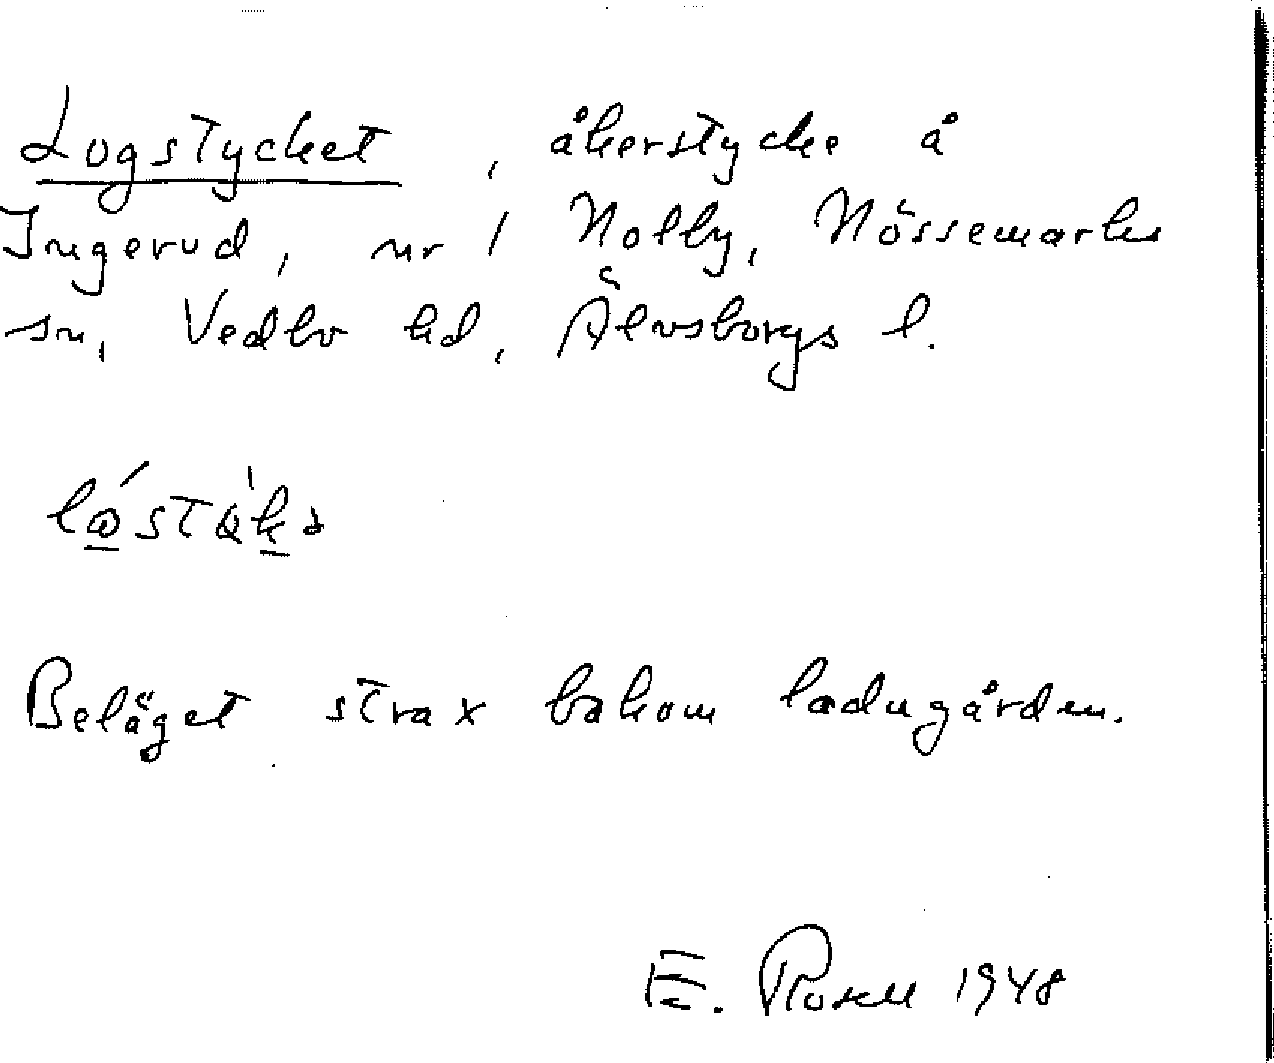 Logstycket, åkerstycke å
Ingerud, nr 1 Nolby, Nössemarks
sn, Vedbo hd, Älvsborgs l.
Beläget strax bakom ladugården.
E. Rosell 1948